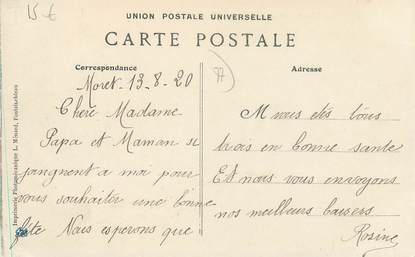 15 €
UNION POSTALE UNIVERSELLE
CARTE POSTALE
Correspondance
Adresse
77
Moret-13-8-20
Chère Madame
Papa et Maman se
joignent à moi pour
vous souhaiter une bonne
fête Nous esperons que
vous etes tous
trois en bonne sante
Et nous vous envoyons
nos meilleurs baisers
Rosine
Imprimerie Photographique L. Ménard, Fontainebleau